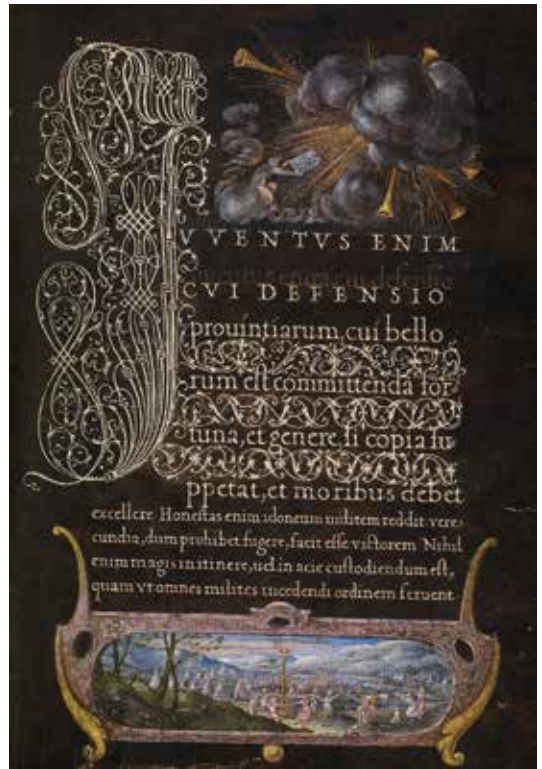 IVVENTVS ENIM
CVI DEFENSIO
prouintiarum, cui bello
rum est committenda for
tuna, et genere si copia su
ppetat, et moribus debet
excellere. Honestas enim idoneum militem reddit vere
cundia, dum prohibet fugere, facit esse victorem Nihil
enim magis in itinere, uel in acie custodiendum est,
quam vt omnes milites incedendi ordinem seruent.